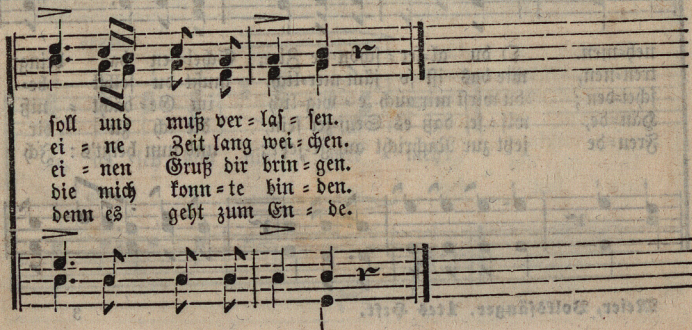 soll und muß ver=las=sen.
ei = ne Zeit lang wei=chen.
ei = nen Gruß dir brin=gen.
die mich konn=te bin=den.
denn es geht zum En = de.